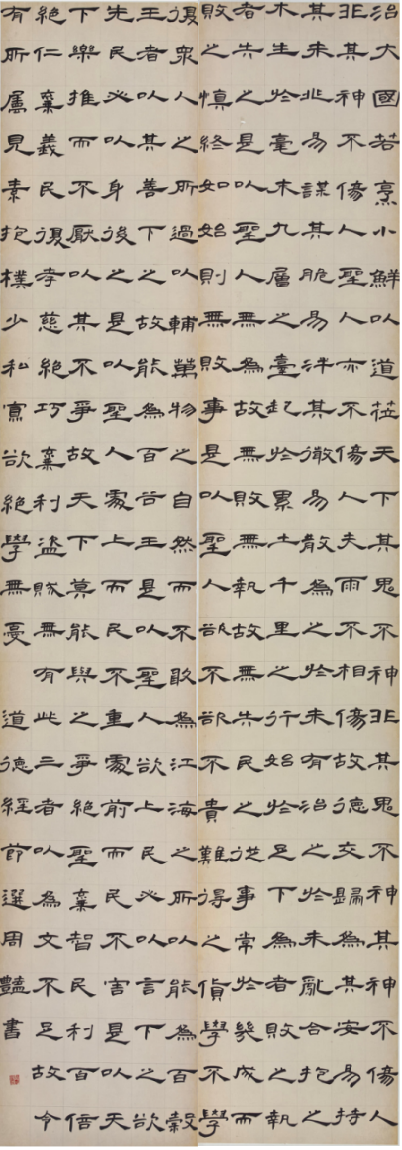 治大國若烹小鮮以道莅天下其鬼不神非其鬼不神其神不傷人
非其神不傷人聖人亦不傷人夫兩不相傷故德交歸焉其安易持
其未兆易謀其脆易泮其微易散為之於未有治之於未亂合抱之
木生於毫末九層之臺起於累土千里之行始於足下為者敗之執
者失之是以聖人無為故無敗無執故無失民之從事常於幾成而
敗之慎終如始則無敗事是以聖人欲不欲不貴難得之貨學不學
復眾人之所過以輔萬物之自然而不敢為江海之所以能為百穀
王者以其善下之故能為百谷王是以聖人欲上民必以言下之欲
先民必以身後之是以聖人處上而民不重處前而民不害是以天
下樂推而不厭以其不爭故天下莫能與之爭絕聖棄智民利百倍
絕仁棄義民復孝慈絕巧棄利盜賊無有此三者以為文不足故令
有所屬見素抱樸少私寡欲絕學無憂 道德經節選周豔書